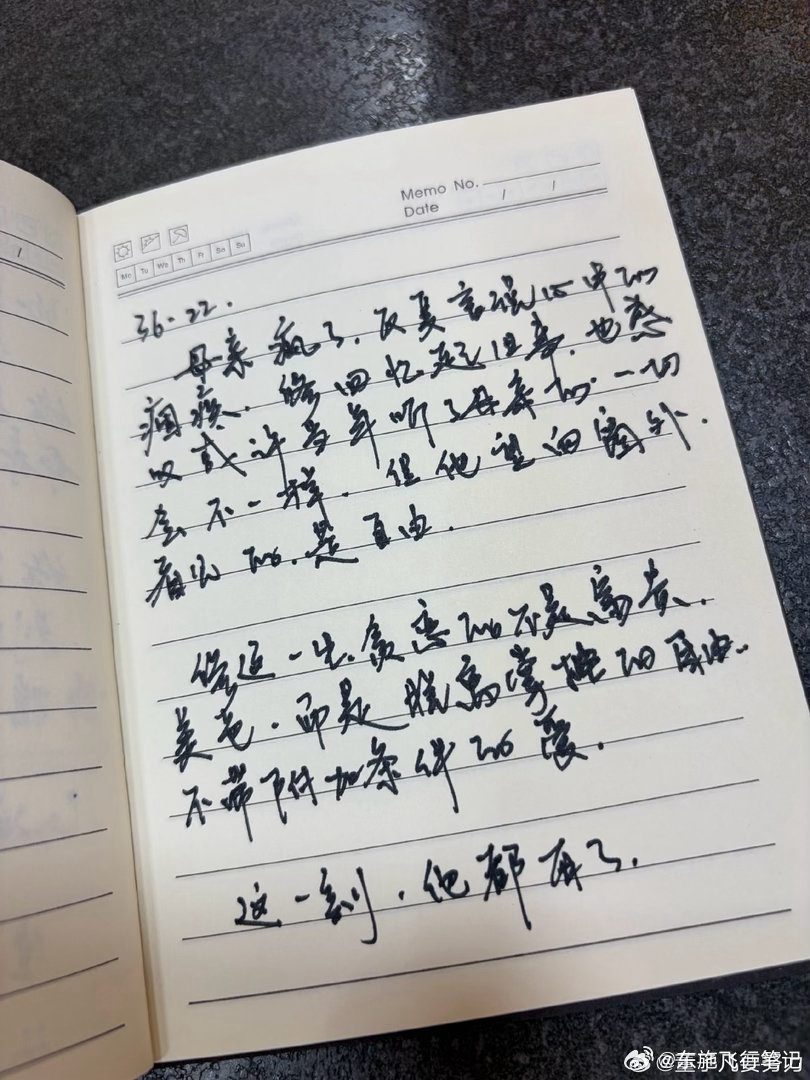 Memo No.
Date / /
Mo Tu We Th Fr Sa Su
36-22.
母亲疯了,反复言说心中的
痼疾.修回忆起旧事.也感
叹或许当年听了母亲的一切
会不一样.但他望向窗外.
看见的.是自由.
修这一生.贪恋的不是富贵.
美色.而是脱离掌控的自由..
不带附加条件的爱.
这一刻.他都有了.
/